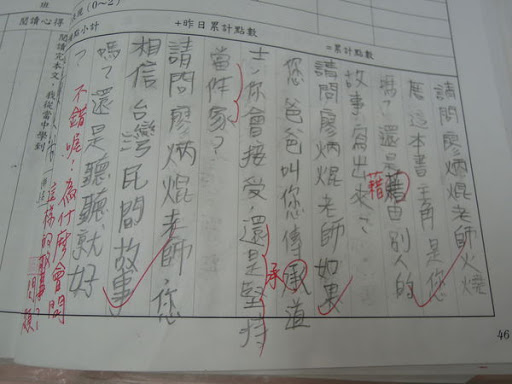 班
(0~2)
閱讀心得
點小計
+昨日累計點數
=累計點數
請問廖炳焜老師火燒
厝這本書主角是您
嗎?還是藉由別人的
藉
故事寫出來?
請問廖炳焜老師如果
您爸爸叫您傳承道
承
士,你會接受,還是堅持
當作家?
請問廖炳焜老師,您
相信台灣民間故事
嗎?還是聽聽就好
?
不錯呢!為什麼會問
這樣的
問題?
閱讀完本文,我從當中學到
46